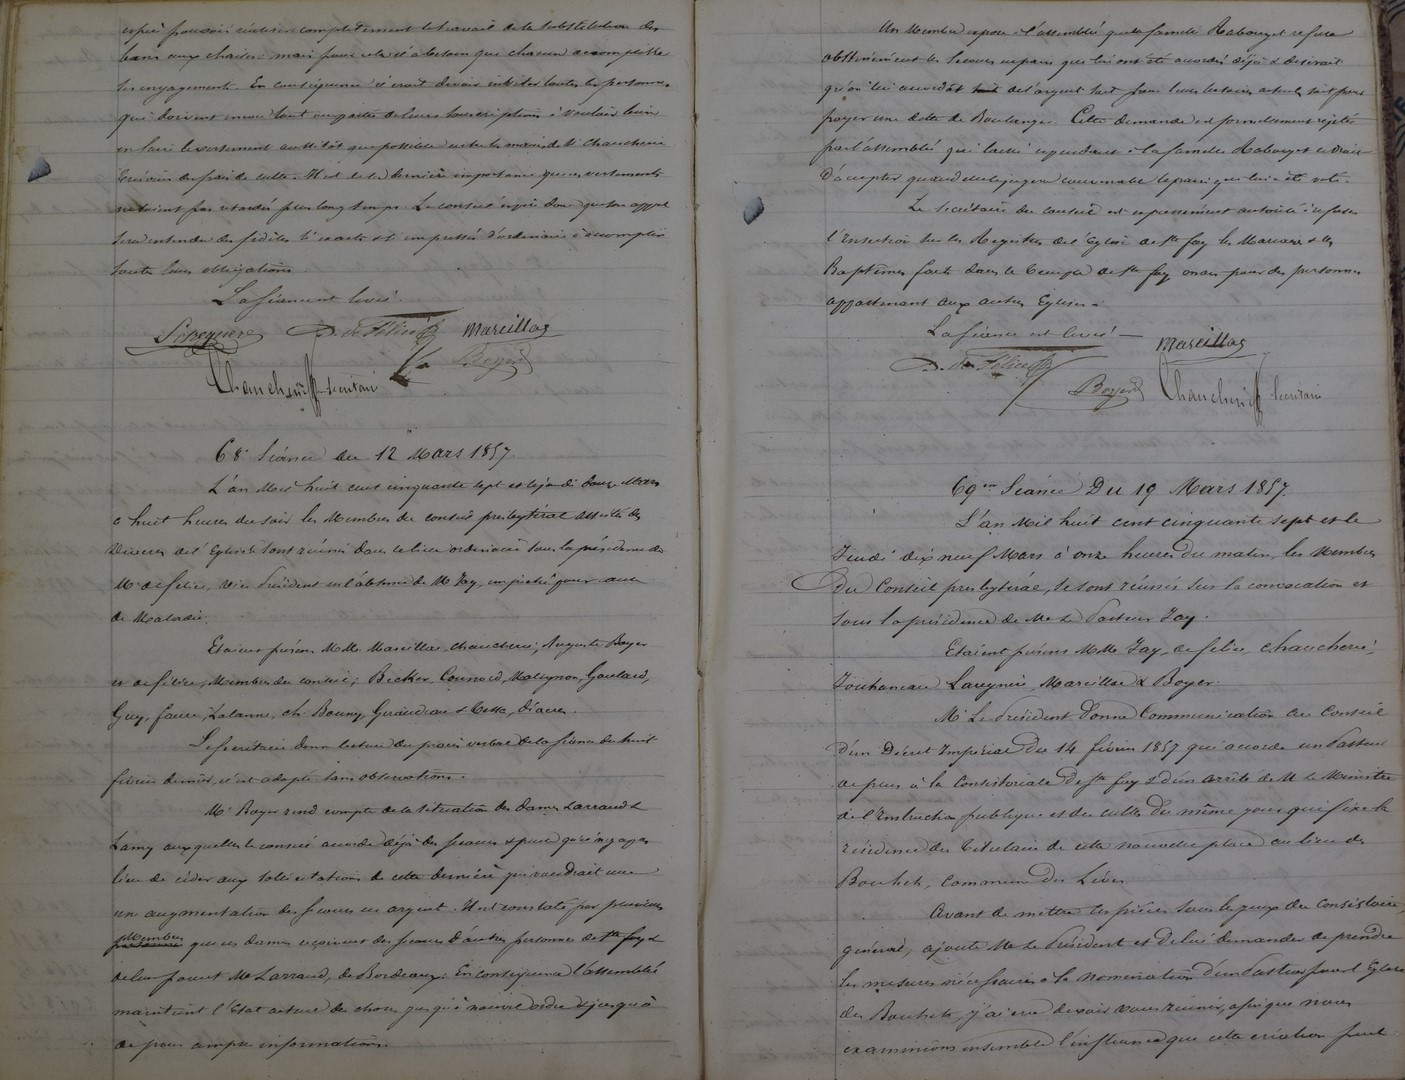 espère pouvoir réaliser complètement le travail de la substitution des
bans aux chaises mais pour cela il a besoin que chacun accomplisse
ses engagements. En conséquence il croit devoir inviter toutes les personnes
qui doivent encore tout ou partie de leurs souscriptions à vouloir bien
en faire le versement aussitôt que possible entre les mains de Mr Chaucherie
Trésorier des frais de culte. Il est de la dernière importance que ces versements
ne soient pas retardés plus longtemps. Le conseil espère donc que son appel
sera entendu des fidèles si exacts et si empressés d'ordinaire à accomplir
toutes leurs obligations.
La séance est levée.
Lareynere D. de Félice Mareillac
Boyer
Chaucherie secrétaire
68e Séance du 12 Mars 1857
L'an Mil huit cent cinquante sept et le jeudi douze Mars
à huit heures du soir les Membres du conseil presbytéral assistés des
Diacres de l'Eglise se sont réunis dans le lieu ordinaire sous la présidence de
Mr de félice, vice Président en l'absence de Mr Jay, empêché pour cause
de Maladie.
Etaient présens MM. Mareillac, chaucherie, Auguste Boyer
et de félice, Membres du conseil; Becker, Counord, Matignon, Goulard,
Guy, faure, Lalanne, ch. Bouny, Giraudeau & Casse, diacres.
Le secrétaire donne lecture du procès verbal de la séance du huit
février dernier, il est adopté sans observations.
Mr Boyer rend compte de la situation des dames Larraud &
Lamy auxquelles le conseil accorde déjà des secours & pense qu'il n'y a pas
lieu de céder aux sollicitations de cette dernière qui voudrait une
une augmentation de secours en argent. Il est constaté par plusieurs
Membres que ces dames reçoivent des secours d'autres personnes de Ste foy &
de leur parent Mr Larraud, de Bordeaux. En conséquence l'assemblée
maintient l'Etat actuel des choses jusqu'à nouvel ordre & jusqu'à
de plus ample informations.
Un Membre expose à l'assemblée que la famille Rabouyet refuse
obstinément les secours en pain qui lui ont été accordés déjà & desirerait
qu'on lui accordât de l'argent soit pour leurs besoins actuels, soit pour
payer une dette de Boulanger. Cette demande est formellement rejetée
par l'assemblée qui laisse cependant à la famille Rabouyet le droit
d'accepter quand elle le jugera convenable le pain qui lui a été voté.
Le secrétaire du conseil est expressément autorisé à refuser
l'Insertion sur les Registres de l'Eglise de Ste foy les Mariages & les
Baptêmes faits dans le Temple de Ste foy mais pour des personnes
appartenant aux autres Eglises.
La séance est levée.
D. de Félice Mareillac
Boyer Chaucherie secrétaire
69me Séance Du 19 Mars 1857.
L'an Mil huit cent cinquante sept et le
Jeudi dix neuf Mars à onze heures du matin, les Membres
Du Conseil presbytéral, se sont réunis sur la convocation et
sous la présidence de Mr le Pasteur Jay.
Etaient présens MM. Jay, de félice, chaucherie,
Jouhaneau Lareynie, Mareillac & Boyer.
Mr Le Président Donne Communication au Conseil
d'un Décret Impérial du 14 février 1857 qui accorde un Pasteur
de plus à la Consistoriale de Ste foy & d'un arrêté de Mr le Ministre
de l'Instruction publique et des cultes du même jour qui fixe la
résidence du Titulaire de cette nouvelle place au lieu des
Bouhets, commune des Lèves.
Avant de mettre les pièces sous les yeux du Consistoire
général, ajoute Mr le Président et de lui demander de prendre
les mesures nécessaires à la nomination d'un Pasteur pour l'Eglise
des Bouhets, j'ai cru devoir vous réunir, afin que nous
examinions ensemble l'influence que cette création peut